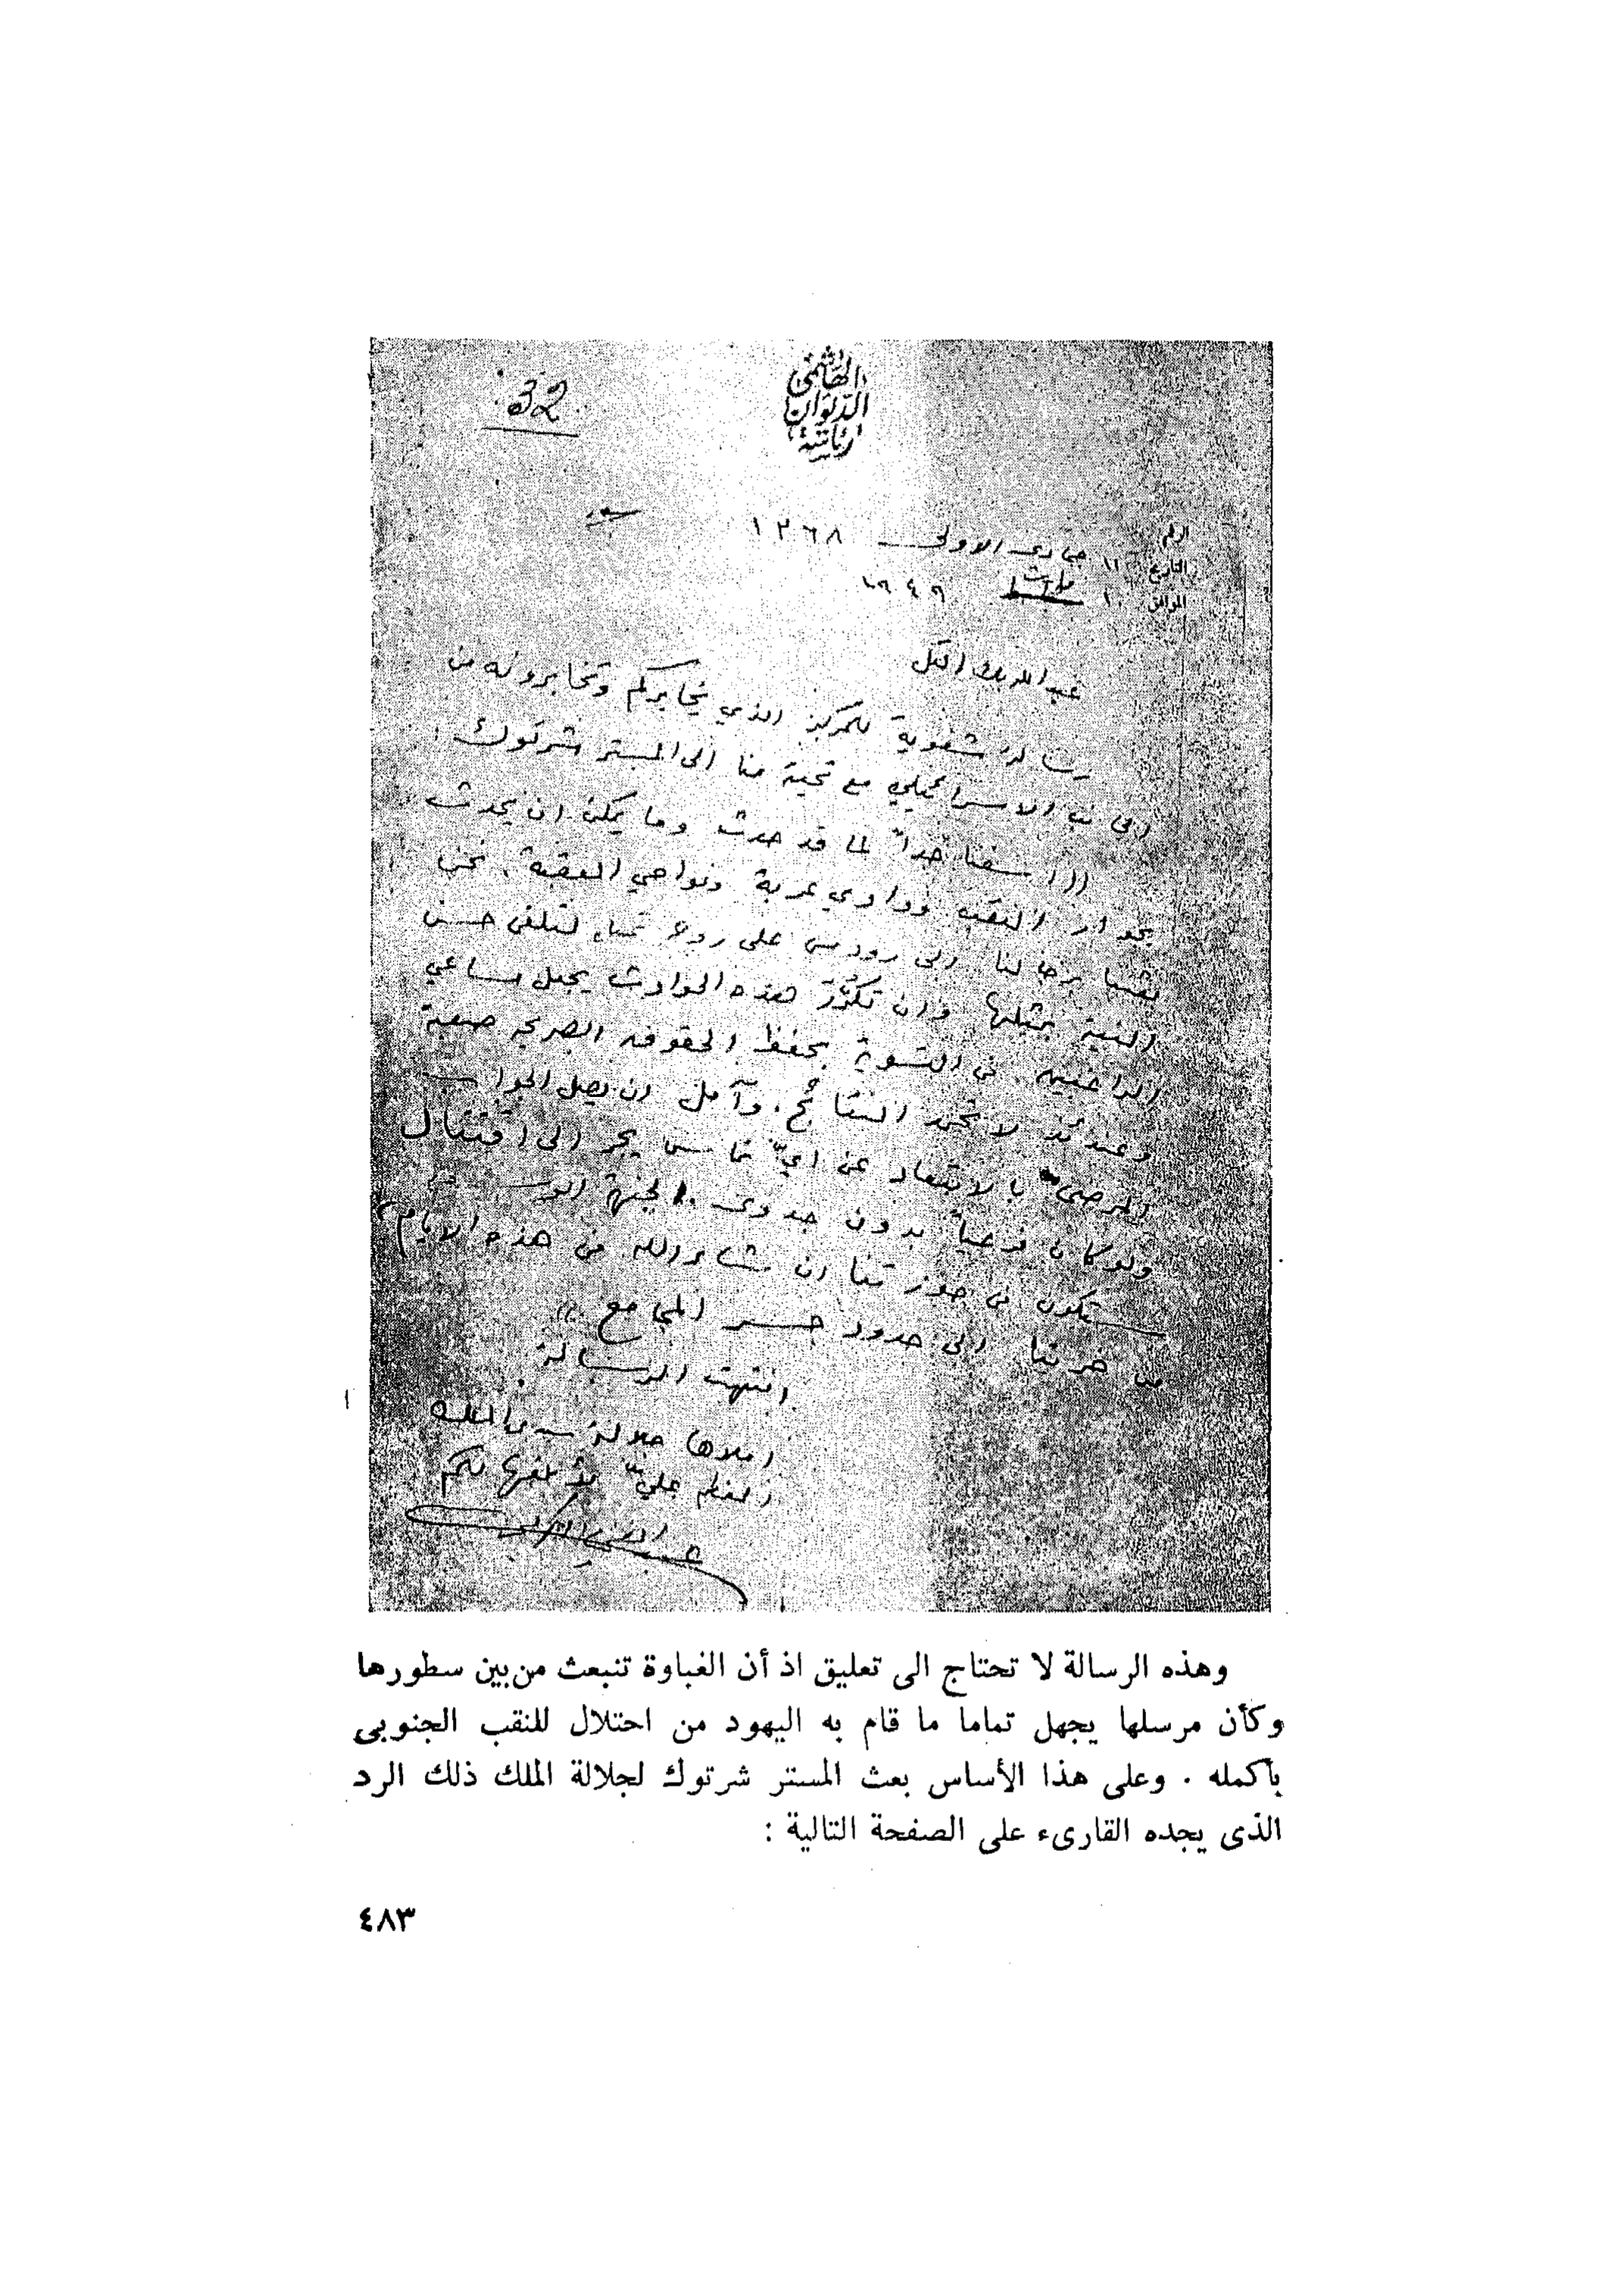 32
الهاشمي
الديوان
رئاسة
الرقم
التاريخ ١١ جمادى الاولى ١٣٦٨
الموافق ١٠ مارت ١٩٤٩
عبد الله بك التل
رسالة شفوية للمركز الذي يخابركم وتخابرونه من
الاسرائيلي مع تحية منا الى المستر شرتوك :
((اسفنا جداً لما قد حدث وما يمكن ان يحدث
بجوار النقب ووادي عربة ونواحي العقبة . نحن
بعثنا برجالنا الى رودس على رودس لتلقى حسن
النية بمثلها وان تكرُّر هذه الحوادث يجعل مساعي
الراغبين في التسوية بحفظ الحقوق الصريحة صعبة
وعندئذ لا تحمد النتائج . وآمل ان يصل الجواب
المرضي بالابتعاد عن ايّ تماس يجر الى اقتتال
ولو كان فرعياً بدون جدوى .
ستكون في حوزتنا ان شاء الله في هذه الايام
من الى حدود جسر المجامع ))
انتهت الرسالة .
املاها جلالة سيدي الملك
المعظم عليّ لأبلغها لكم
وهذه الرسالة لا تحتاج الى تعليق اذ أن الغباوة تنبعث من بين سطورها
وكأن مرسلها يجهل تماما ما قام به اليهود من احتلال للنقب الجنوبى
بأكمله . وعلى هذا الأساس بعث المستر شرتوك لجلالة الملك ذلك الرد
الذى يجده القارىء على الصفحة التالية :
٤٨٣